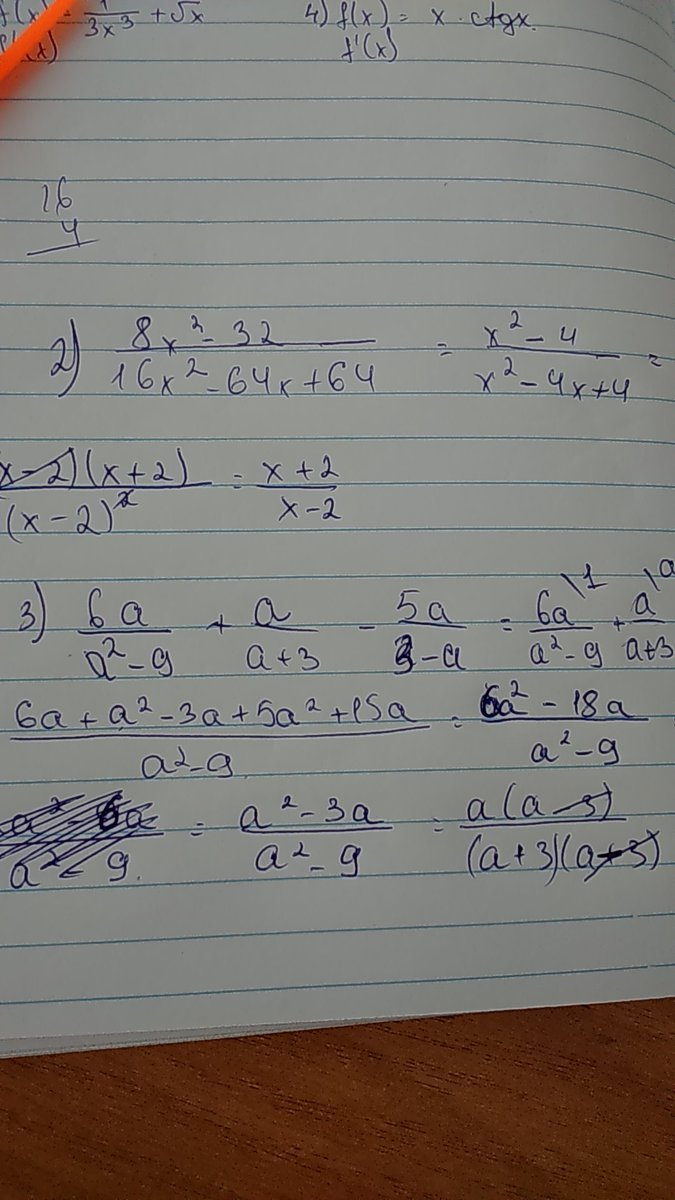 f(x) = 1/3x³ + √x 4) f(x) = x · ctgx.
f'(x) f'(x)
16
4
2) 8x² - 32 / 16x² - 64x + 64 = x² - 4 / x² - 4x + 4 =
x - 2)(x + 2) / (x - 2)² = x + 2 / x - 2
3) 6a / a² - 9 + a / a + 3 - 5a / 3 - a = 6a \1 / a² - 9 + a \a / a + 3
6a + a² - 3a + 5a² + 15a / a² - 9 = 6a² - 18a / a² - 9
a² - 6a / a² - 9. = a² - 3a / a² - 9 = a(a - 3) / (a + 3)(a - 3)